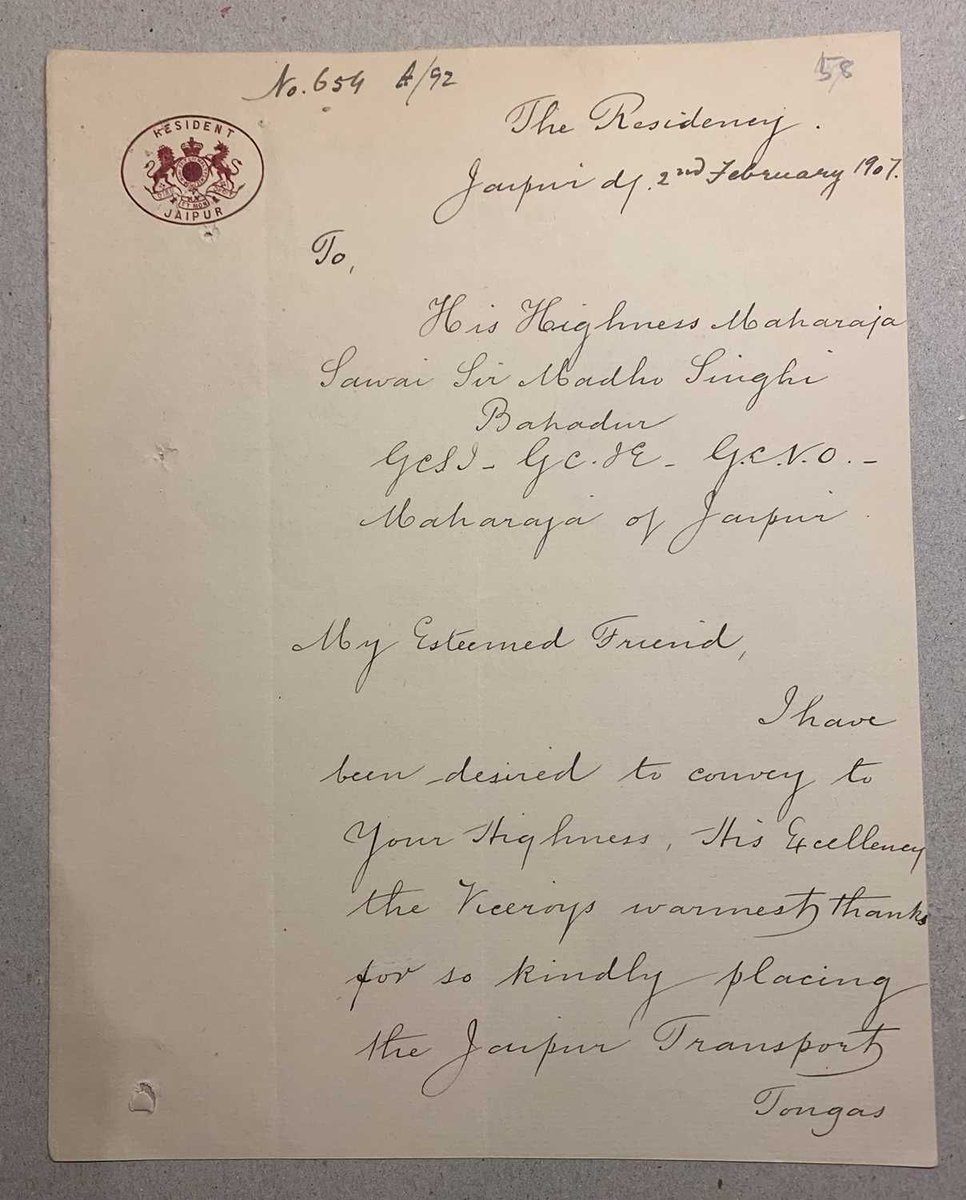 No. 654 A/92
58
RESIDENT
JAIPUR
The Residency.
Jaipur d/. 2nd February 1907.
To,
His Highness Maharaja
Sawai Sir Madho Singhi
Bahadur
GCSI - GC.IE - G.C.V.O. -
Maharaja of Jaipur
My Esteemed Friend,
I have
been desired to convey to
Your Highness, His Excellency
the Viceroys warmest thanks
for so kindly placing
the Jaipur Transport
Tongas